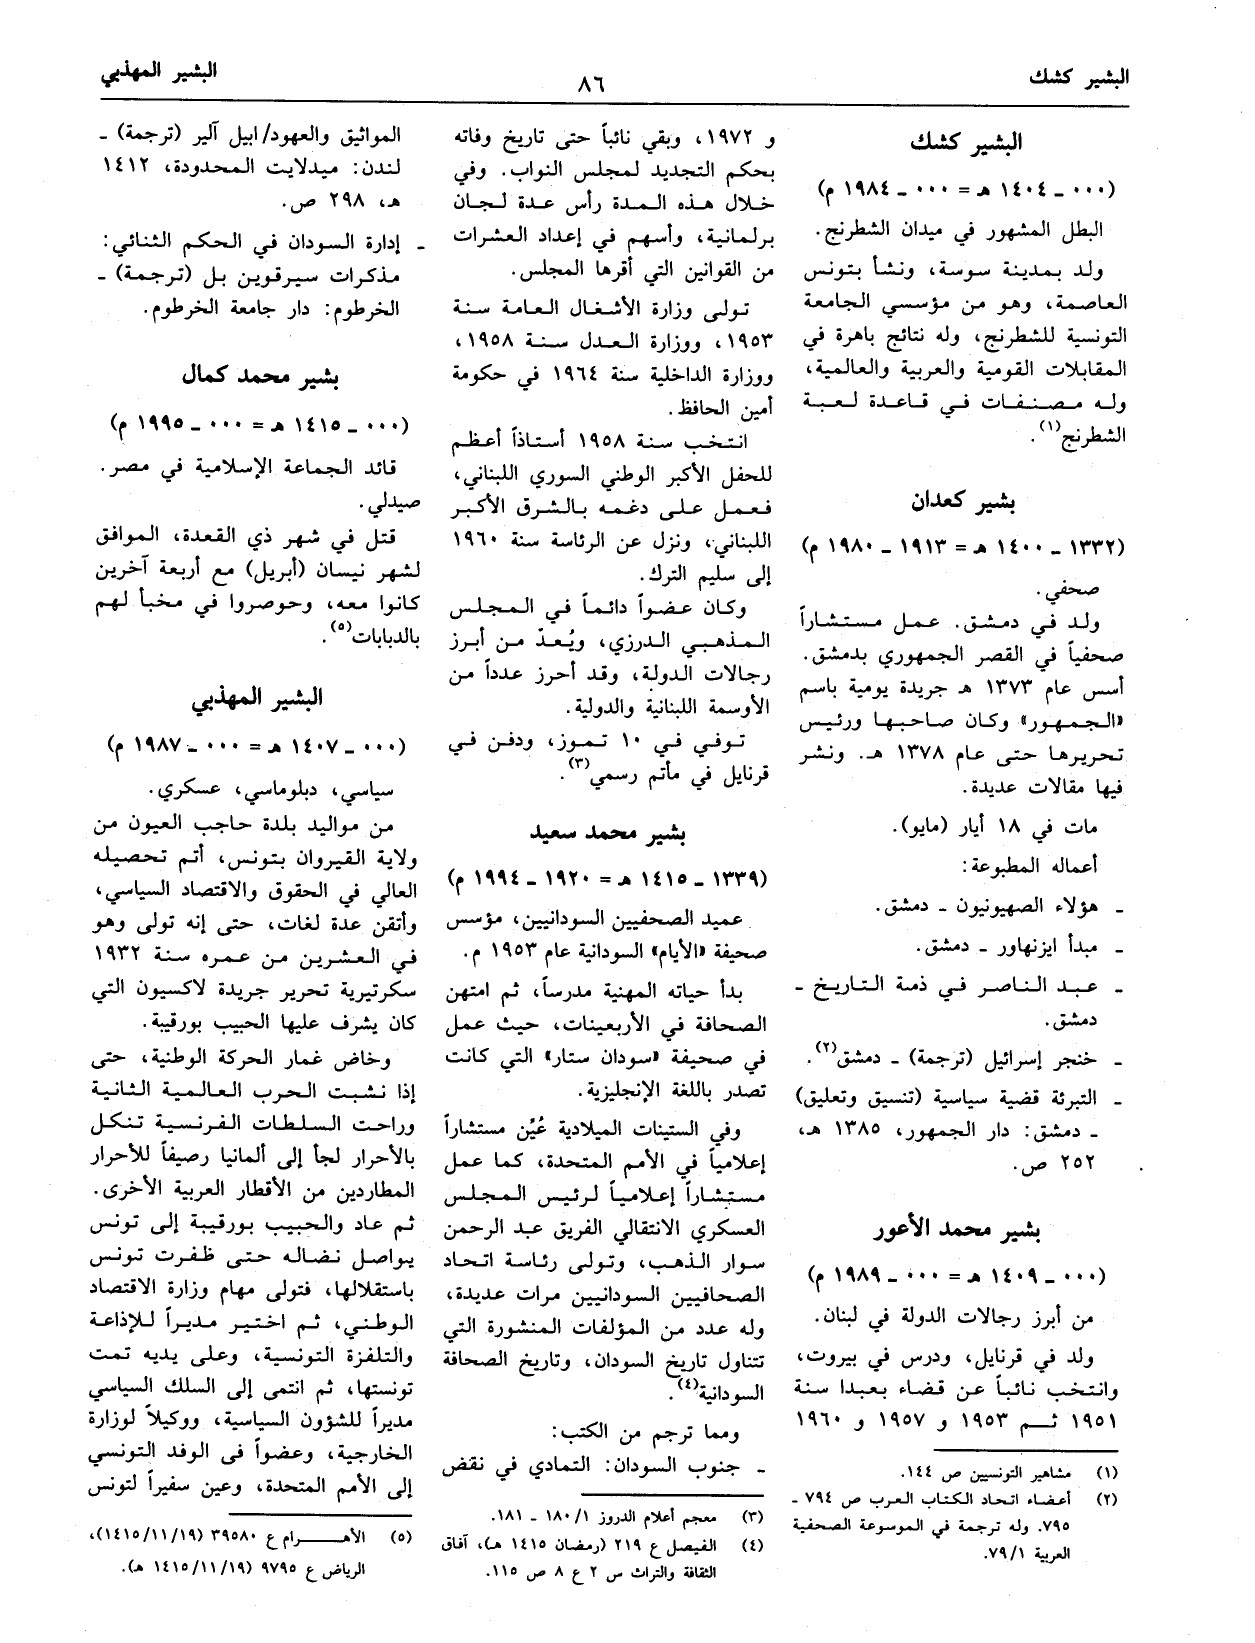 البشير كشك
٨٦
البشير المهذبي
البشير كشك
(٠٠٠ ـ ١٤٠٤ هـ = ٠٠٠ ـ ١٩٨٤ م)
البطل المشهور في ميدان الشطرنج.
ولد بمدينة سوسة، ونشأ بتونس
العاصمة، وهو من مؤسسي الجامعة
التونسية للشطرنج، وله نتائج باهرة في
المقابلات القومية والعربية والعالمية،
وله مصنفات في قاعدة لعبة
الشطرنج(١).
بشير كعدان
(١٣٣٢ ـ ١٤٠٠ هـ = ١٩١٣ ـ ١٩٨٠ م)
صحفي.
ولد في دمشق. عمل مستشاراً
صحفياً في القصر الجمهوري بدمشق.
أسس عام ١٣٧٣ هـ جريدة يومية باسم
«الجمهور» وكان صاحبها ورئيس
تحريرها حتى عام ١٣٧٨ هـ. ونشر
فيها مقالات عديدة.
مات في ١٨ أيار (مايو).
أعماله المطبوعة:
ـ هؤلاء الصهيونيون ـ دمشق.
ـ مبدأ ايزنهاور ـ دمشق.
ـ عبد الناصر في ذمة التاريخ ـ
دمشق.
ـ خنجر إسرائيل (ترجمة) ـ دمشق(٢).
ـ التبرئة قضية سياسية (تنسيق وتعليق)
ـ دمشق: دار الجمهور، ١٣٨٥ هـ،
٢٥٢ ص.
بشير محمد الأعور
(٠٠٠ ـ ١٤٠٩ هـ = ٠٠٠ ـ ١٩٨٩ م)
من أبرز رجالات الدولة في لبنان.
ولد في قرنايل، ودرس في بيروت،
وانتخب نائباً عن قضاء بعبدا سنة
١٩٥١ ثم ١٩٥٣ و ١٩٥٧ و ١٩٦٠
(١) مشاهير التونسيين ص ١٤٤.
(٢) أعضاء اتحاد الكتاب العرب ص ٧٩٤ ـ
٧٩٥. وله ترجمة في الموسوعة الصحفية
العربية ٧٩/١.
و ١٩٧٢، وبقي نائباً حتى تاريخ وفاته
بحكم التجديد لمجلس النواب. وفي
خلال هذه المدة رأس عدة لجان
برلمانية، وأسهم في إعداد العشرات
من القوانين التي أقرها المجلس.
تولى وزارة الأشغال العامة سنة
١٩٥٣، ووزارة العدل سنة ١٩٥٨،
ووزارة الداخلية سنة ١٩٦٤ في حكومة
أمين الحافظ.
انتخب سنة ١٩٥٨ أستاذاً أعظم
للحفل الأكبر الوطني السوري اللبناني،
فعمل على دغمه بالشرق الأكبر
اللبناني، ونزل عن الرئاسة سنة ١٩٦٠
إلى سليم الترك.
وكان عضواً دائماً في المجلس
المذهبي الدرزي، ويُعدّ من أبرز
رجالات الدولة، وقد أحرز عدداً من
الأوسمة اللبنانية والدولية.
توفي في ١٠ تموز، ودفن في
قرنايل في مأتم رسمي(٣).
بشير محمد سعيد
(١٣٣٩ ـ ١٤١٥ هـ = ١٩٢٠ ـ ١٩٩٤ م)
عميد الصحفيين السودانيين، مؤسس
صحيفة «الأيام» السودانية عام ١٩٥٣ م.
بدأ حياته المهنية مدرساً، ثم امتهن
الصحافة في الأربعينات، حيث عمل
في صحيفة «سودان ستار» التي كانت
تصدر باللغة الإنجليزية.
وفي الستينات الميلادية عُيّن مستشاراً
إعلامياً في الأمم المتحدة، كما عمل
مستشاراً إعلامياً لرئيس المجلس
العسكري الانتقالي الفريق عبد الرحمن
سوار الذهب، وتولى رئاسة اتحاد
الصحافيين السودانيين مرات عديدة،
وله عدد من المؤلفات المنشورة التي
تتناول تاريخ السودان، وتاريخ الصحافة
السودانية(٤).
ومما ترجم من الكتب:
ـ جنوب السودان: التمادي في نقض
(٣) معجم أعلام الدروز ١٨٠/١ ـ ١٨١.
(٤) الفيصل ع ٢١٩ (رمضان ١٤١٥ هـ)، آفاق
الثقافة والتراث س ٢ ع ٨ ص ١١٥.
المواثيق والعهود/ ابيل آلير (ترجمة) ـ
لندن: ميدلايت المحدودة، ١٤١٢
هـ، ٢٩٨ ص.
ـ إدارة السودان في الحكم الثنائي:
مذكرات سيرقوين بل (ترجمة) ـ
الخرطوم: دار جامعة الخرطوم.
بشير محمد كمال
(٠٠٠ ـ ١٤١٥ هـ = ٠٠٠ ـ ١٩٩٥ م)
قائد الجماعة الإسلامية في مصر.
صيدلي.
قتل في شهر ذي القعدة، الموافق
لشهر نيسان (أبريل) مع أربعة آخرين
كانوا معه، وحوصروا في مخبأ لهم
بالدبابات(٥).
البشير المهذبي
(٠٠٠ ـ ١٤٠٧ هـ = ٠٠٠ ـ ١٩٨٧ م)
سياسي، دبلوماسي، عسكري.
من مواليد بلدة حاجب العيون من
ولاية القيروان بتونس، أتم تحصيله
العالي في الحقوق والاقتصاد السياسي،
وأتقن عدة لغات، حتى إنه تولى وهو
في العشرين من عمره سنة ١٩٣٢
سكرتيرية تحرير جريدة لاكسيون التي
كان يشرف عليها الحبيب بورقيبة.
وخاض غمار الحركة الوطنية، حتى
إذا نشبت الحرب العالمية الثانية
وراحت السلطات الفرنسية تنكل
بالأحرار لجأ إلى ألمانيا رصيفاً للأحرار
المطاردين من الأقطار العربية الأخرى.
ثم عاد والحبيب بورقيبة إلى تونس
يواصل نضاله حتى ظفرت تونس
باستقلالها، فتولى مهام وزارة الاقتصاد
الوطني، ثم اختير مديراً للإذاعة
والتلفزة التونسية، وعلى يديه تمت
تونستها، ثم انتمى إلى السلك السياسي
مديراً للشؤون السياسية، ووكيلاً لوزارة
الخارجية، وعضواً في الوفد التونسي
إلى الأمم المتحدة، وعين سفيراً لتونس
(٥) الأهـــرام ع ٣٩٥٨٠ (١٤١٥/١١/١٩)،
الرياض ع ٩٧٩٥ (١٤١٥/١١/١٩ هـ).